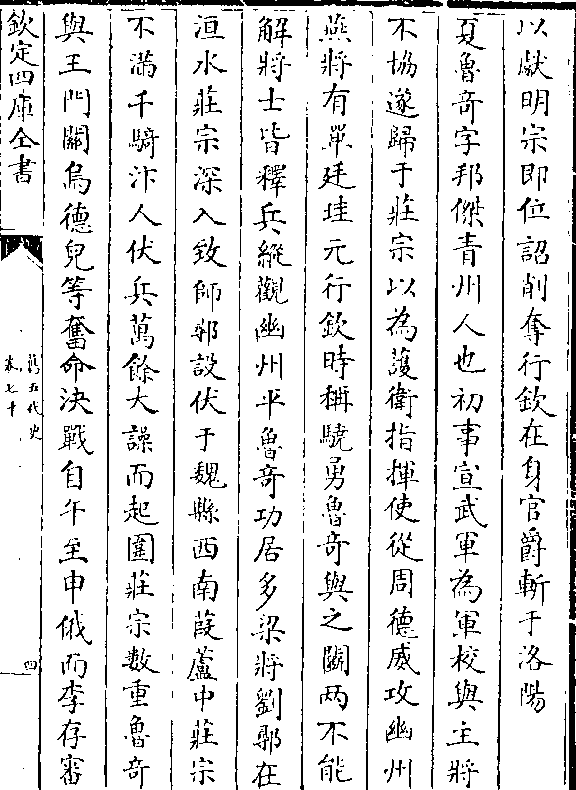 以獻明宗即位詔削奪行欽在身官爵斬于洛陽
夏魯奇字邦傑青州人也初事宣武軍為軍校與主將
不協遂歸于莊宗以為護衛指揮使從周德威攻幽州
燕將有單廷珪元行欽時稱驍勇魯奇與之鬭兩不能
解將士皆釋兵縱觀幽州平魯奇功居多梁將劉鄩在
洹水莊宗深入致師鄩設伏于魏縣西南葭蘆中莊宗
不滿千騎汴人伏兵萬餘大譟而起圍莊宗數重魯奇
與王門關烏德兒等奮命決戰自午至申俄而李存審
欽定四庫全書
舊五代史
卷七十
四